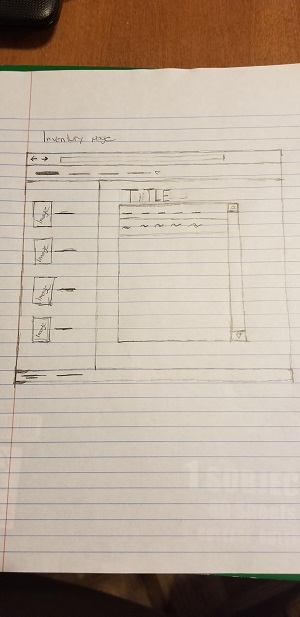 Inventory page
TITLE
Image
Image
Image
Image